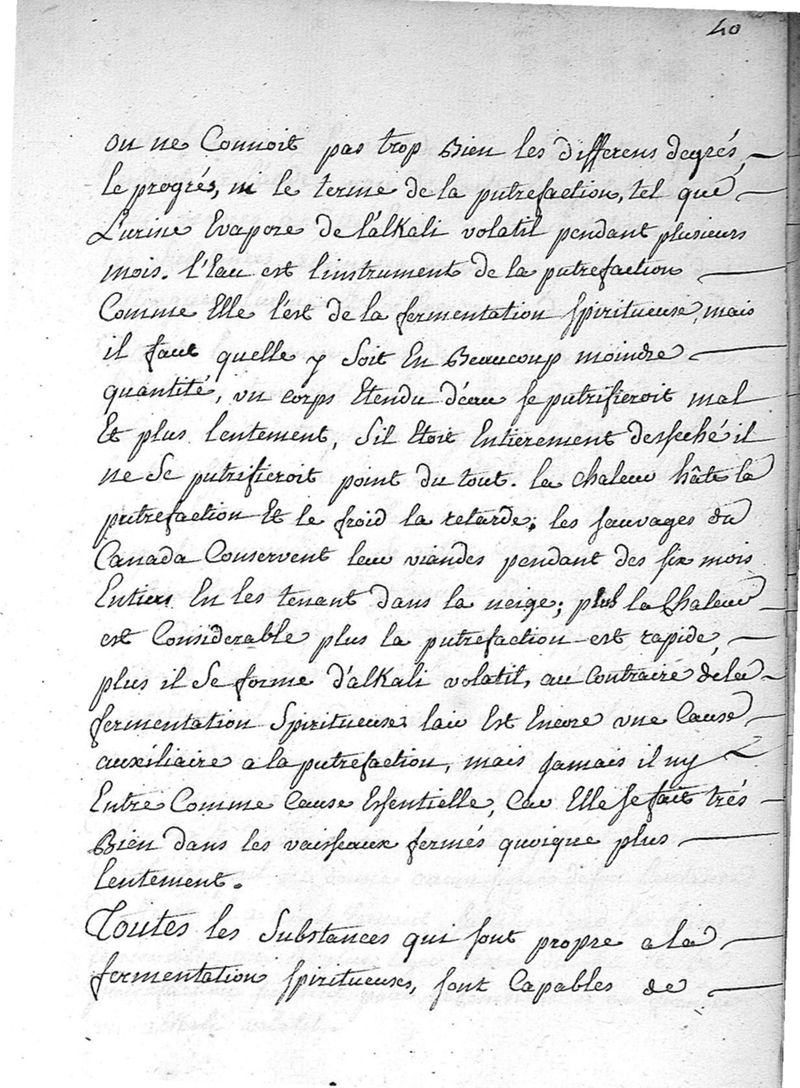 40
on ne Connoit pas trop Bien les differens degrés,
le progrés, ni le terme de la putrefaction, tel que
L'urine Evapore de l'alkali volatil pendant plusieurs
mois. l'Eau est linstrument de la putrefaction
Comme Elle l'est de la fermentation spiritueuse, mais
il faut quelle y soit En Beaucoup moindre
quantité, un corps Etendu d'eau se putrifieroit mal
Et plus lentement, s'il Etoit Entierement desseché il
ne se putrifieroit point du tout. la chaleur hâte la
putrefaction Et le froid la retarde; les sauvages du
Canada Conservent leur viandes pendant des six mois
Entiers En les tenant dans la neige; plus la Chaleur
est Considerable plus la putrefaction est rapide,
plus il se forme d'alkali volatil, au Contraire de la
fermentation Spiritueuse, lair Est Encore une Cause
auxiliaire a la putrefaction, mais jamais il ny
Entre Comme Cause Essentielle, Car Elle se fait trés
Bien dans les vaisseaux fermés quoique plus
lentement.
Toutes les Substances qui sont propre a la
fermentation spiritueuse, sont Capables de